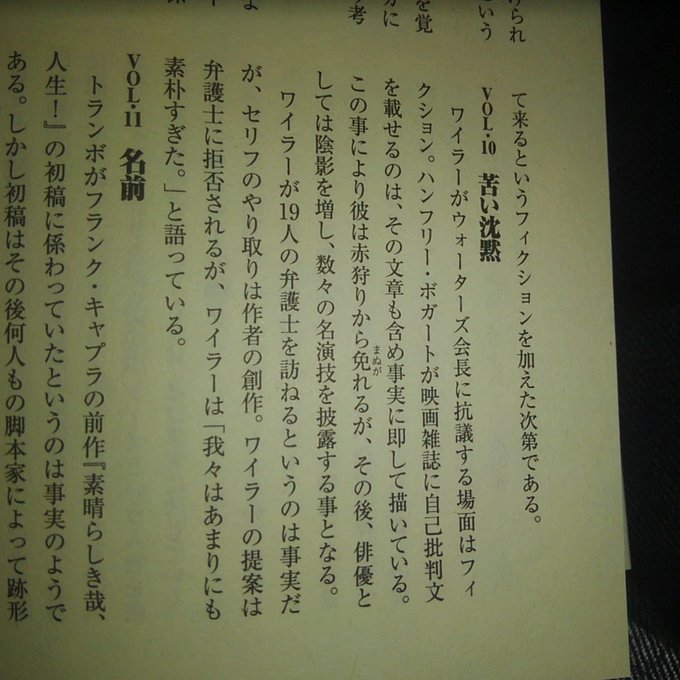 けられ
という
を覚
て来るというフィクションを加えた次第である。
VOL・10 苦い沈黙
ワイラーがウォーターズ会長に抗議する場面はフィ
クション。ハンフリー・ボガートが映画雑誌に自己批判文
を載せるのは、その文章も含め事実に即して描いている。
この事により彼は赤狩りから免れるが、その後、俳優と
まぬが
しては陰影を増し、数々の名演技を披露する事となる。
ワイラーが19人の弁護士を訪ねるというのは事実だ
が、セリフのやり取りは作者の創作。ワイラーの提案は
弁護士に拒否されるが、ワイラーは「我々はあまりにも
素朴すぎた。」と語っている。
VOL・11 名前
トランボがフランク・キャプラの前作『素晴らしき哉、
人生!』の初稿に係わっていたというのは事実のようで
ある。しかし初稿はその後何人もの脚本家によって跡形